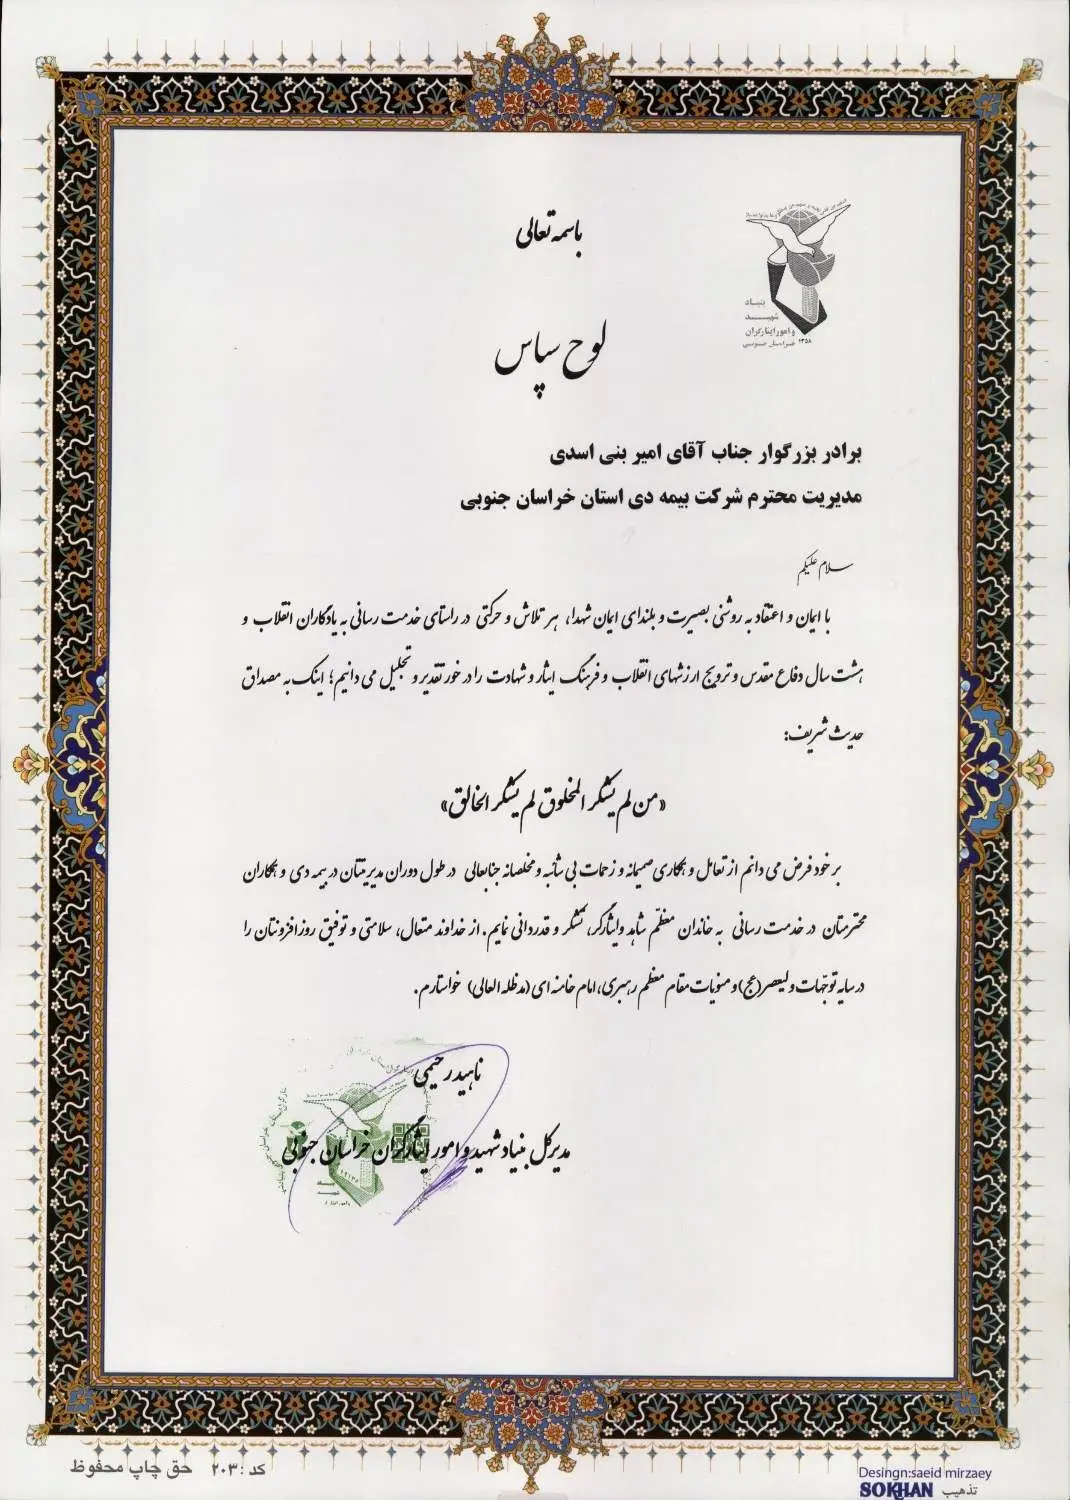 باسمه تعالی
بنیاد
شهید
و امور ایثارگران
خراسان جنوبی ۱۳۵۸
لوح سپاس
برادر بزرگوار جناب آقای امیر بنی اسدی
مدیریت محترم شرکت بیمه دی استان خراسان جنوبی
سلام علیکم
با ایمان و اعتقاد به روشنی بصیرت و بلندای ایمان شهدا، هر تلاش و حرکتی در راستای خدمت رسانی به یادگاران انقلاب و
هشت سال دفاع مقدس و ترویج ارزشهای انقلاب و فرهنگ ایثار و شهادت را در خور تقدیر و تجلیل می دانیم؛ اینک به مصداق
حدیث شریف:
«من لم یشکر المخلوق لم یشکر الخالق»
بر خود فرض می دانم از تعامل و همکاری صمیمانه و زحمات بی شائبه و مخلصانه جنابعالی در طول دوران مدیریتتان در بیمه دی و همکاران
محترمتان در خدمت رسانی به خاندان معظّم شاهد و ایثارگر، تشکر و قدردانی نمایم. از خداوند متعال، سلامتی و توفیق روزافزونتان را
در سایه توجّهات ولیعصر(عج) و منویات مقام معظم رهبری، امام خامنه ای (مدظله العالی) خواستارم.
ناهید رحیمی
مدیرکل بنیاد شهید و امور ایثارگران خراسان جنوبی
کد : ۲۰۳ حق چاپ محفوظ
Desingn:saeid mirzaey
تذهیب SOKHAN